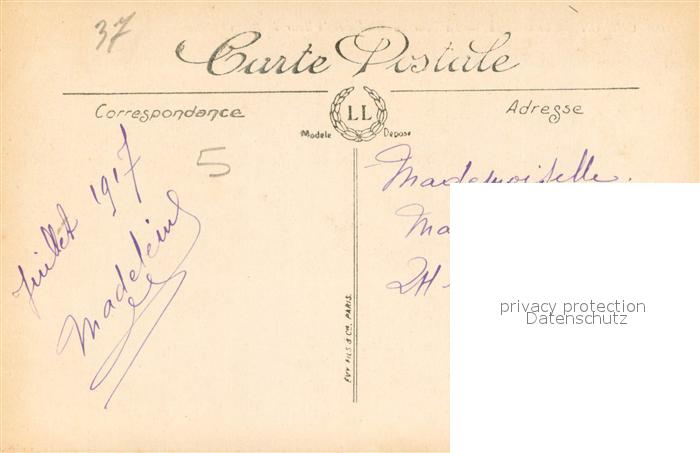 37
Carte Postale
Correspondance
LL
Adresse
Modèle Déposé
5
Juillet 1917
Madeleine
Mademoiselle
Ma
24
LEVY FILS & Co, PARIS.
privacy protection
Datenschutz